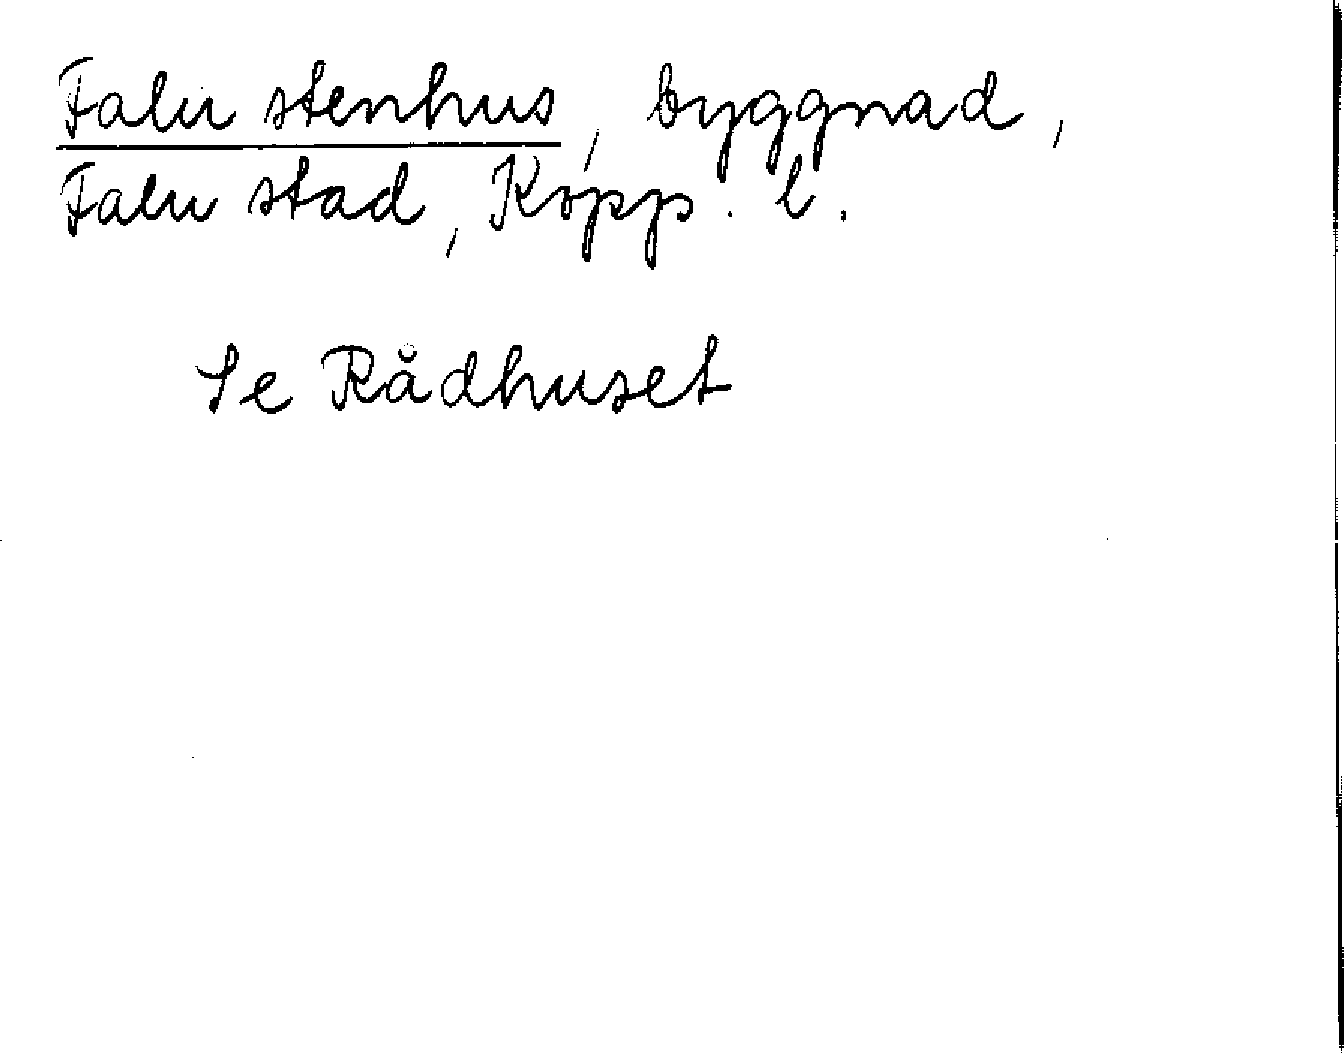 Falu stenhus, byggnad,
Falu stad, Kopp. l.
Se Rådhuset